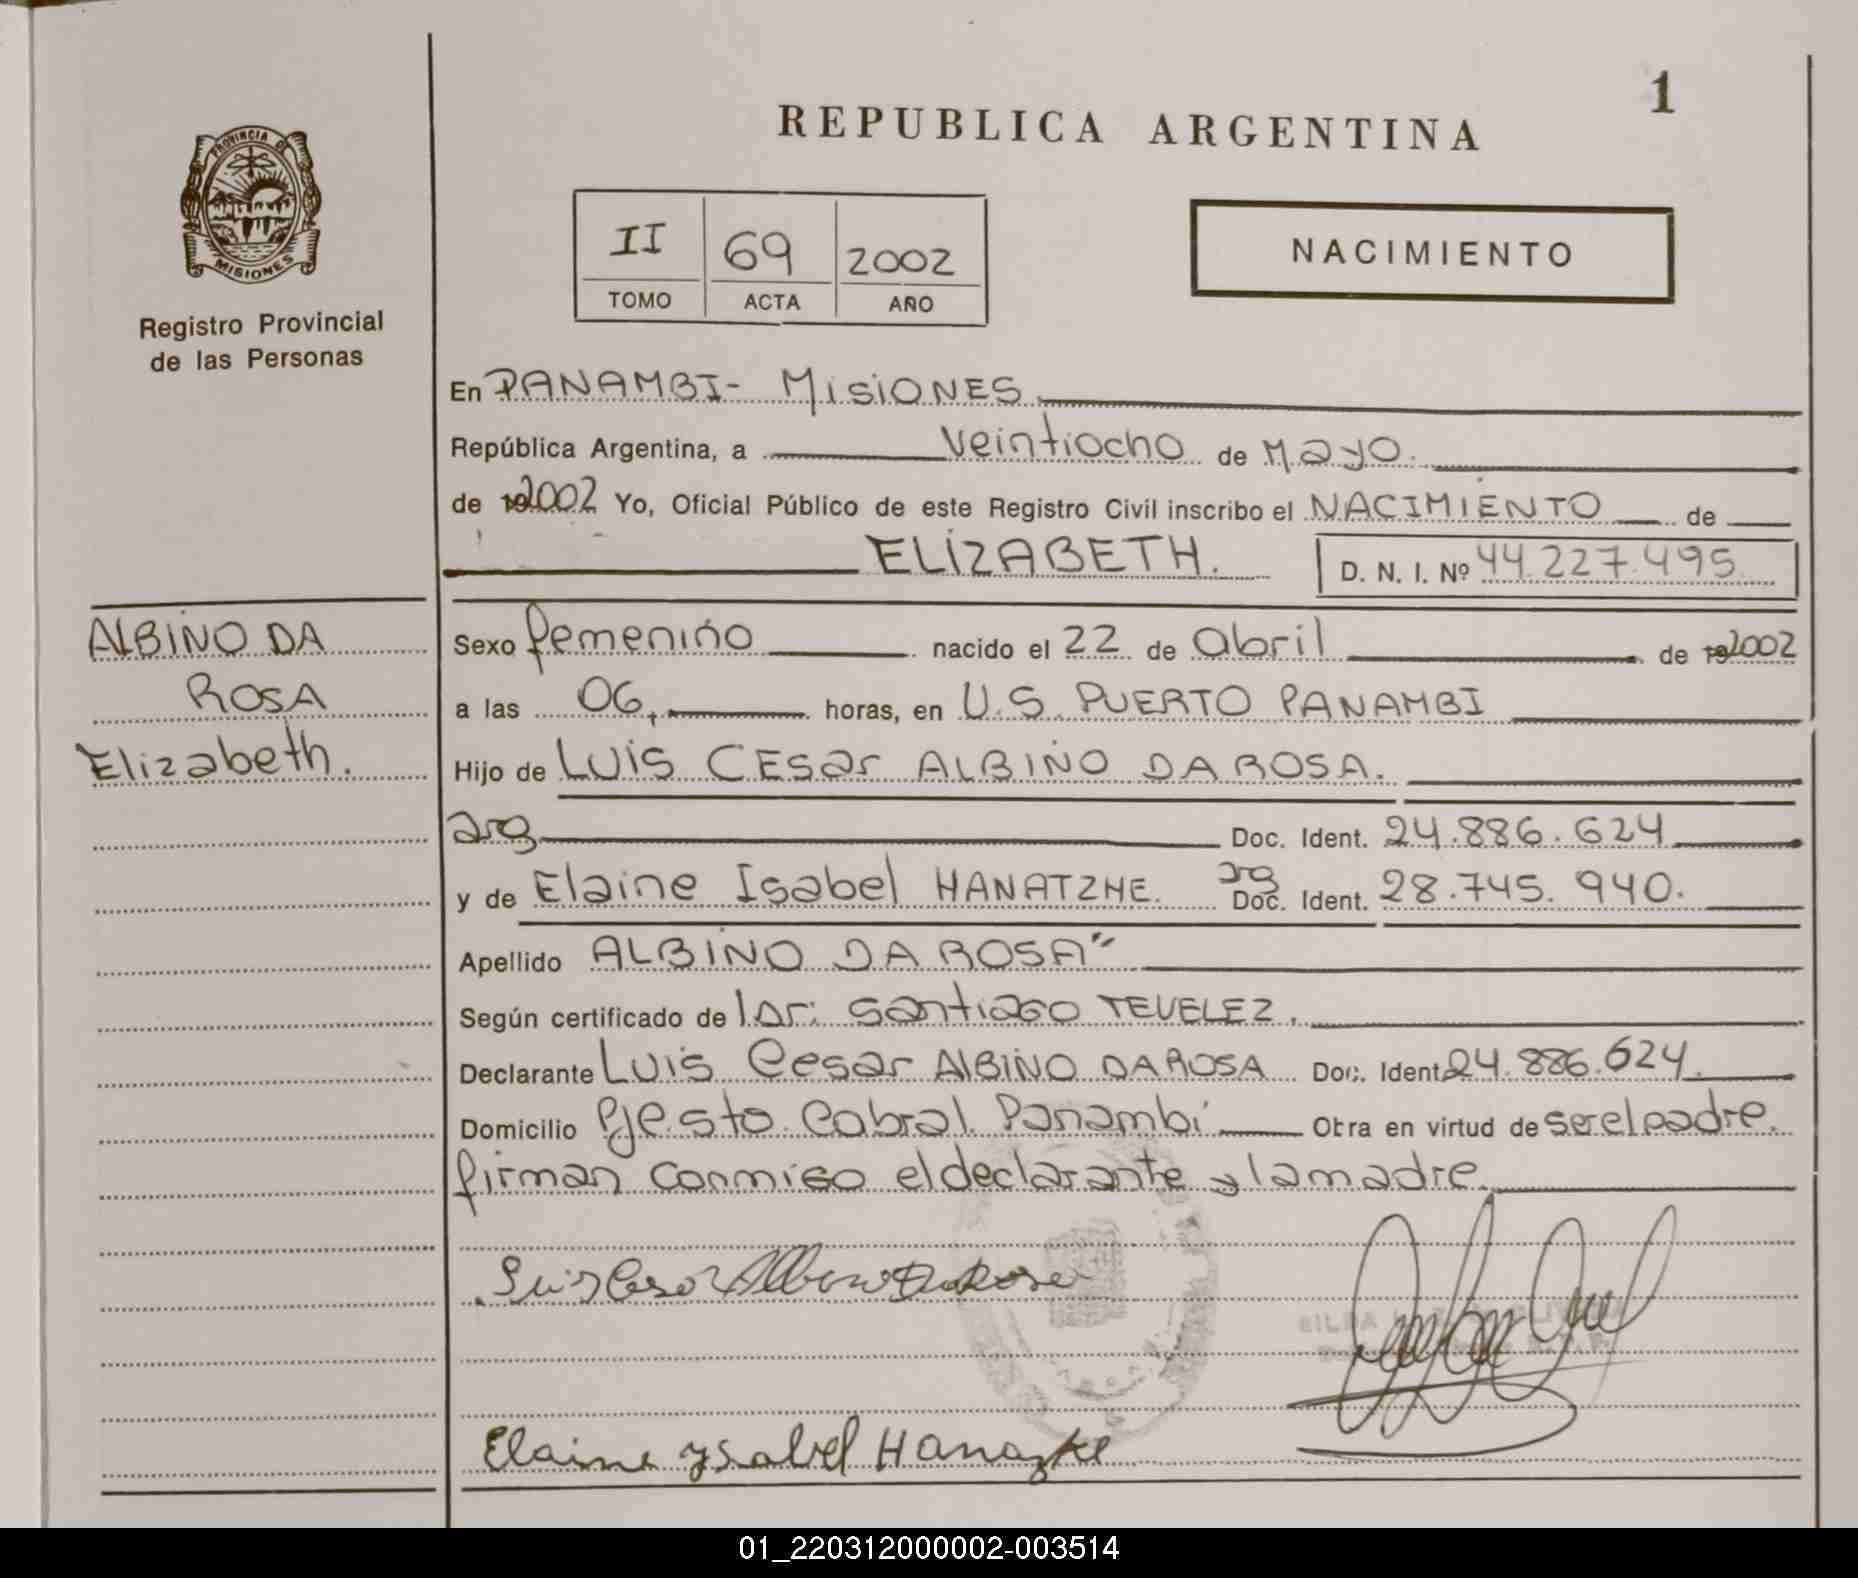 1
REPUBLICA ARGENTINA
PROVINCIA DE
MISIONES
Registro Provincial
de las Personas
II 69 2002
TOMO ACTA AÑO
NACIMIENTO
En PANAMBI - MISIONES
República Argentina, a veintiocho de Mayo.
de 192002 Yo, Oficial Público de este Registro Civil inscribo el NACIMIENTO de
ELIZABETH. D. N. I. Nº 44.227.495
ALBINO DA
ROSA
Elizabeth.
Sexo femenino nacido el 22 de abril de 192002
a las 06, horas, en U.S. PUERTO PANAMBI
Hijo de LUIS CESar ALBINO DA ROSA.
arg Doc. Ident. 24.886.624
y de Elaine Isabel HANATZHE. arg Doc. Ident. 28.745.940.
Apellido ALBINO DA ROSA"
Según certificado de Dr: Santiago TEVELEZ.
Declarante LUIS Cesar ALBINO DA ROSA Doc. Ident. 24.886.624.
Domicilio Pje. Sto. Cabral. Panambí Otra en virtud de ser el padre.
firman conmigo el declarante y la madre.
Luis Cesar Albino Da Rosa
Elaine Ysabel Hanazke
01_220312000002-003514